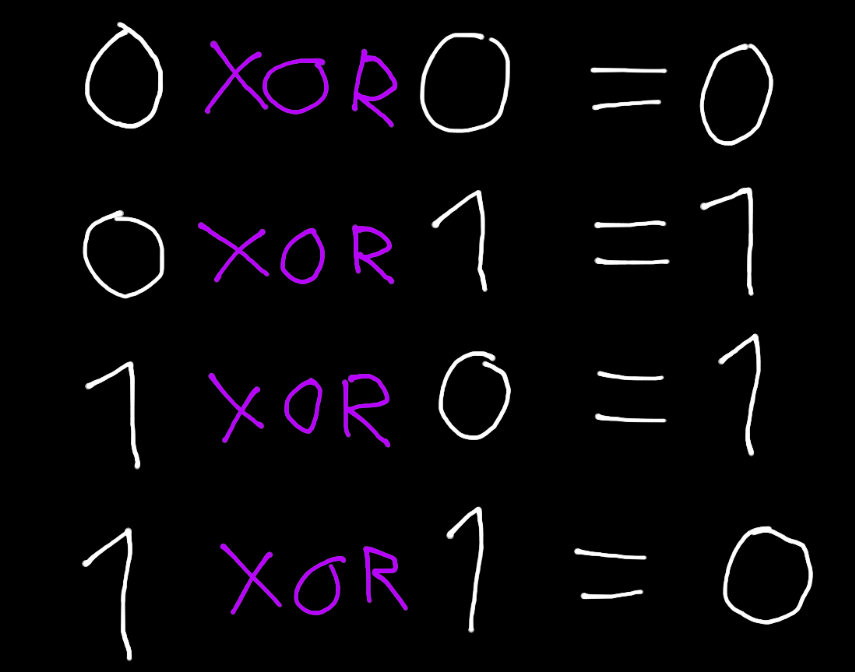 0 XOR 0 = 0
0 XOR 1 = 1
1 XOR 0 = 1
1 XOR 1 = 0